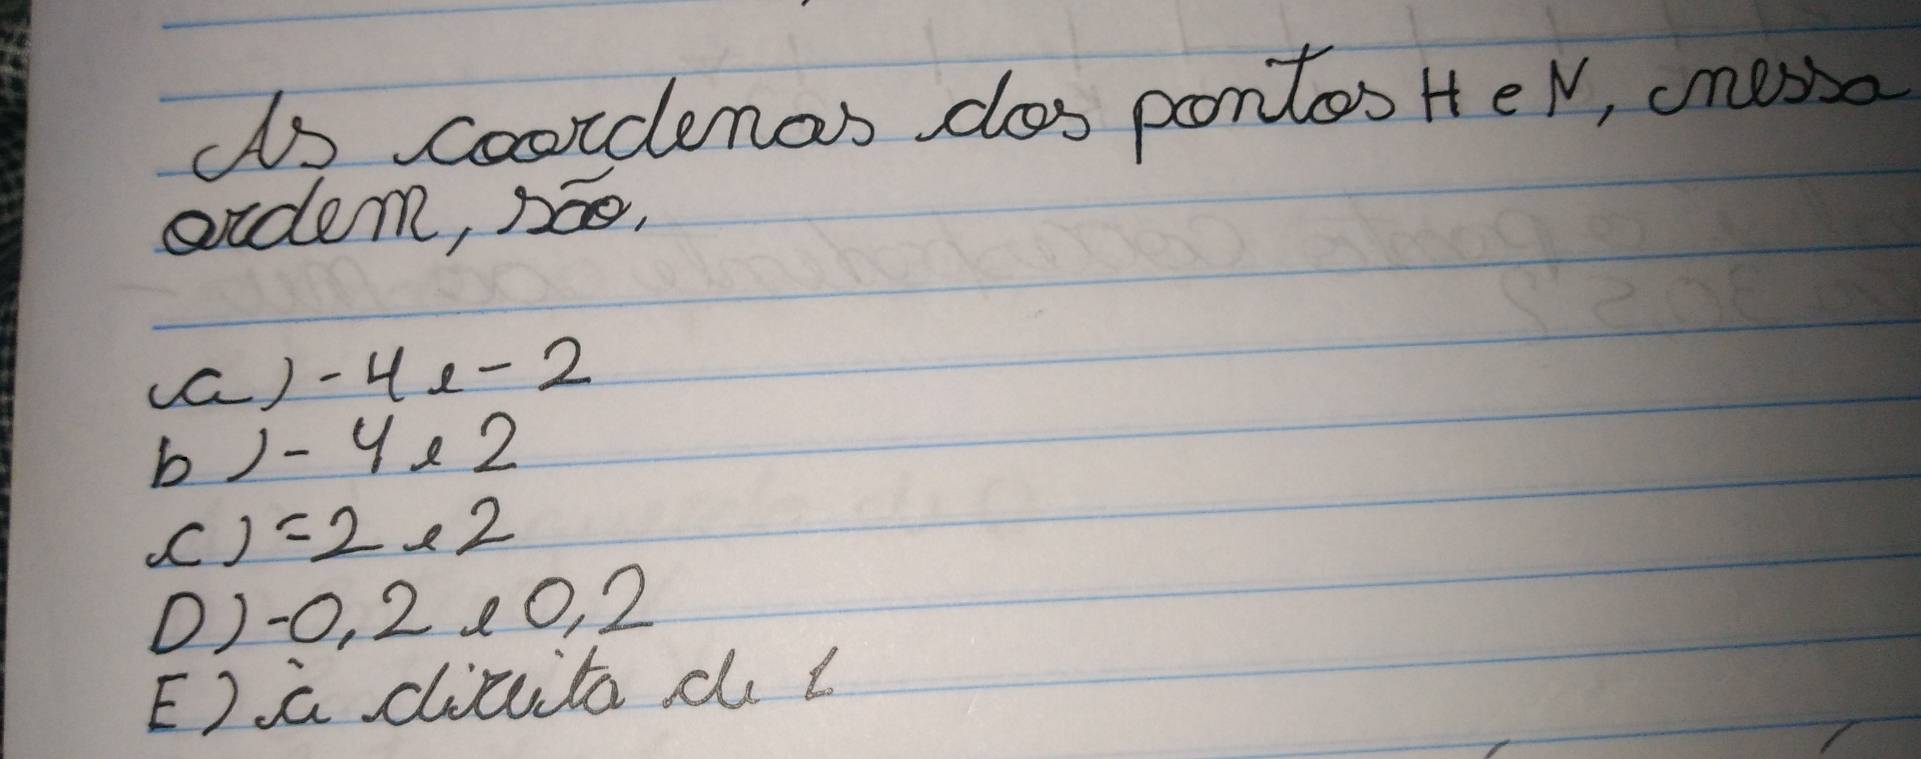 As coordenas dos pontos H e N, nessa
ordem, são,
a) -4 e -2
b) -4 e 2
c) =2 e 2
D) -0,2 e 0,2
E) à direita de